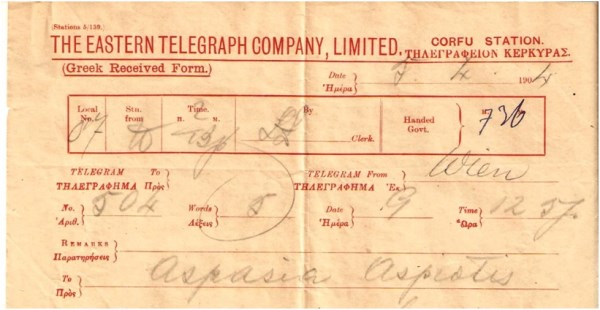 (Stations 5/139.)
THE EASTERN TELEGRAPH COMPANY, LIMITED. CORFU STATION.
ΤΗΛΕΓΡΑΦΕΙΟΝ ΚΕΡΚΥΡΑΣ.
(Greek Received Form.)
Date
Ἡμέρα 4 1904
Local No. 87 Stn. from Time. H. M. By Clerk. Handed Govt. H.
TELEGRAM To TELEGRAM From Wien
ΤΗΛΕΓΡΑΦΗΜΑ Πρὸς ΤΗΛΕΓΡΑΦΗΜΑ Ἐκ
No. 504 Words 5 Date 9 Time 12 57
Ἀριθ. Λέξεις Ἡμέρα Ὥρα
REMARKS
Παρατηρήσεις
To Aspasia Aspiotis
Πρὸς